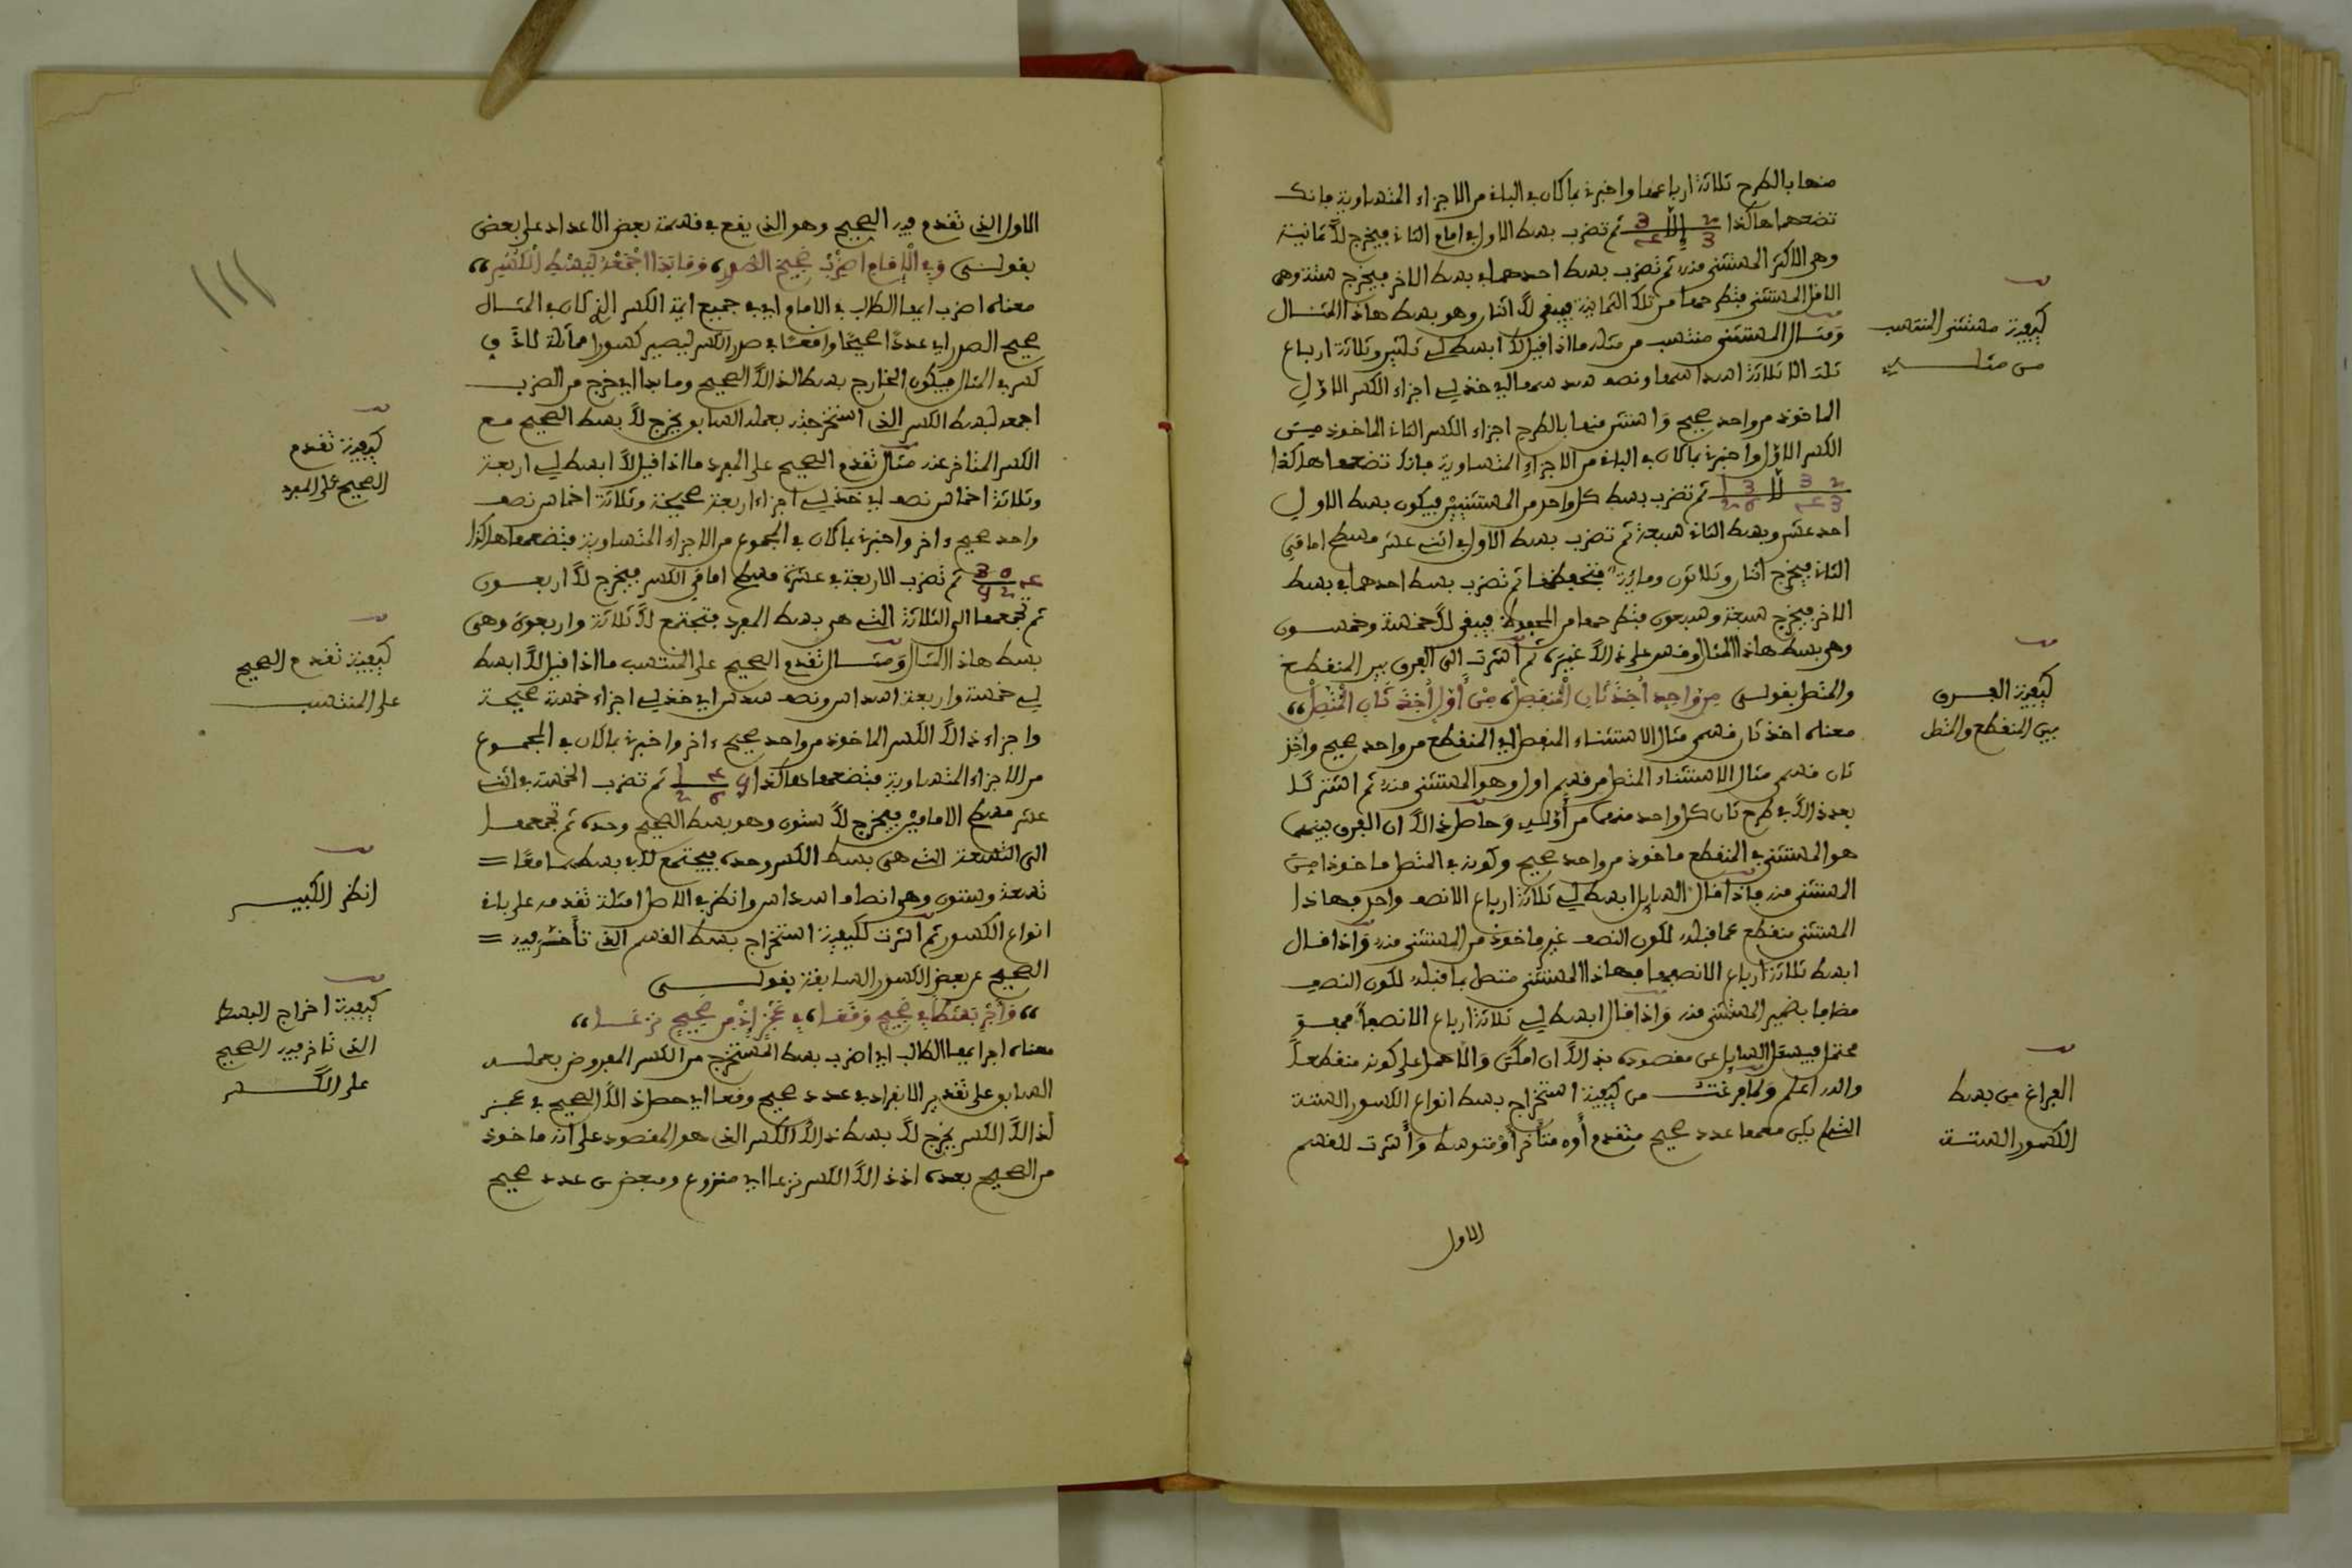 منها بالطرح ثلاثة ارباعها واخبرنى بما كان في الباقى من الاجزاء المتساوية فإنك
تضعهما هاكذا ثم تضرب بسط الاول في امام الثانى فيخرج لك ثمانية
وهى الاكثر المستثنى منه ثم تضرب بسط احدهما في بسط الاخر فيخرج ستة وهى
الاقل المستثنى فتطرحها من تلك الثمانية فيبقى لك اثنان وهو بسط هاذا المثال
ومثال المستثنى منتسب من مثله ما اذا قيل لك ابسط لى ثلثين وثلاثة ارباع
ثلث الا ثلاثة اسداسهما ونصف سدسهما اى خذ لى اجزاء الكسر الاول
الماخوذ من واحد صحيح واستثن منها بالطرح اجزاء الكسر الثانى الماخوذ من
الكسر الاول واخبرنى بما كان في الباقى من الاجزاء المتساوية فإنك تضعهما هاكذا
ثم تضرب بسط كل واحد من المستثنيين فيكون بسط الاول
احد عشر وبسط الثانى سبعة ثم تضرب بسط الاول في اثنى عشر مسطح امامى
الثانى فيخرج اثنان وثلاثون ومائة فتحفظها ثم تضرب بسط احدهما في بسط
الاخر فيخرج سبعة وسبعون فتطرحها من المحفوظ فيبقى لك خمسة وخمسون
وهى بسط هاذا المثال وقس على ذالك غيره ثم اشرت الى الفرق بين المنقطع
والمتصل بقولى من واحد اخذ ثان المنفصل من اول اخذ ثان المتصل
معناه اخذ ثان قسمى مثال الاستثناء المنفصل اى المنقطع من واحد صحيح واخذ
ثان قسمى مثال الاستثناء المتصل من قسم اول وهو المستثنى منه ثم اشتركا
بعد ذالك في طرح ثان كل واحد منهما من اوله وحاصل ذالك ان الفرق بينهما
هو المستثنى في المنقطع ماخوذ من واحد صحيح وكونه في المتصل ماخوذا من
المستثنى منه فإذا قال السايل ابسط لى ثلاثة ارباع الا نصف واحد فهاذا
المستثنى منقطع عما قبله لكون النصف غير ماخوذ من المستثنى منه واذا قال
ابسط ثلاثة ارباع الا نصفها فهاذا المستثنى متصل بما قبله لكون النصف
مضافا بضمير المستثنى منه واذا قال ابسط لى ثلاثة ارباع الا نصفا فهو
محتمل فيسئل السايل عن مقصوده بذالك ان امكن والا حمل على كونه منقطعا
والله اعلم ولما فرغت من كيفية استخراج بسط انواع الكسور الستة
التى لم يكن معها عدد صحيح متقدم أو متأخر أو متوسط وأشرت للقسم
الاول
كيفية مستثنى المنتسب
من مثله
كيفية الفرق
بين المنقطع والمتصل
الفراغ من بسط
الكسور الستة
الاول الذى تقدم فيه الصحيح وهو الذى يقع في قسمة بعض الاعداد على بعض
بقولى وفي الامام اضرب صحيح الصدر وما بدا اجمعه لبسط الكسر
معناه اضرب ايها الطالب في الامام اى في جميع ائمة الكسر الذى كان في المثال
صحيح الصدر اى عددا صحيحا واقعا في صدر الكسر ليصير كسورا مماثلة لاق
كسر في المثال فيكون الخارج بسط لذالك الصحيح وما بدا اى خرج من الضرب
اجمعه لبسط الكسر الذى استخرجته بعمله السابق يخرج لك بسط الصحيح مع
الكسر المتاخر عنه مثال تقدم الصحيح على المفرد ما اذا قيل لك ابسط لى اربعة
وثلاثة اخماس نصف اى خذ لى اجزاء اربعة صحيحة وثلاثة اخماس نصف
واحد صحيح ءاخر واخبرنى بما كان في المجموع من الاجزاء المتساوية فتضعها هاكذا
ثم تضرب الاربعة في عشرة مسطح امامى الكسر فيخرج لك اربعون
ثم تجمعها الى الثلاثة التى هى بسط المفرد فتجتمع لك ثلاثة واربعون وهى
بسط هاذا المثال ومثال تقدم الصحيح على المنتسب ما اذا قيل لك ابسط
لى خمسة واربعة اسداس ونصف سدس اى خذ لى اجزاء خمسة صحيحة
واجزاء ذالك الكسر الماخوذ من واحد صحيح ءاخر واخبرنى بما كان في المجموع
من الاجزاء المتساوية فتضعها هاكذا ثم تضرب الخمسة في اثنى
عشر مسطح الامامين فيخرج لك ستون وهو بسط الصحيح وحده ثم تجمعها
الى التسعة التى هى بسط الكسر وحده فيجتمع لك بسطهما معا =
تسعة وستون وهى انصاف اسداس وانظر في الاصل امثلة تقدمه على باقى
انواع الكسور ثم اشرت لكيفية استخراج بسط القسم الذى تأخر فيه =
الصحيح عن بعض الكسور السابقة بقولى
معناه اجر ايها الطالب اى اضرب بسط المستخرج من الكسر المفروض بعمله
السابق على تقدير الانفراد في عدد صحيح وقعا اى حصل ذالك الصحيح في عجز
لذالك الكسر يخرج لك بسط ذالك الكسر الذى هو المقصود على انه ماخوذ
من الصحيح بعده اذ ذالك الكسر نزعا اى منزوع ومبعض من عدد صحيح
كيفية تقدم
الصحيح على المفرد
كيفية تقدم الصحيح
على المنتسب
انظر الكبير
كيفية اخراج البسط
الذى تاخر فيه الصحيح
على الكسر
111